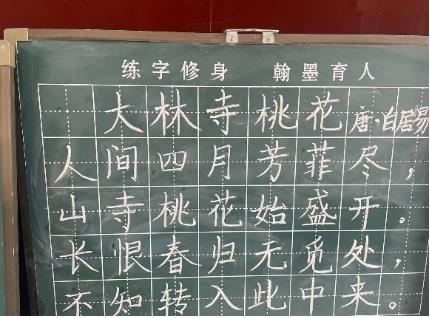 练字修身 翰墨育人
大林寺桃花 唐·白居易
人间四月芳菲尽，
山寺桃花始盛开。
长恨春归无觅处，
不知转入此中来。